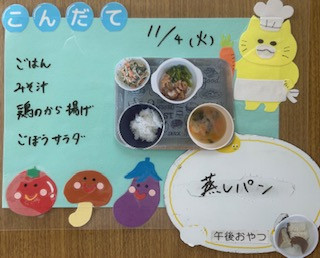 こんだて
11/4(火)
ごはん
みそ汁
鶏のから揚げ
ごぼうサラダ
蒸しパン
午後おやつ